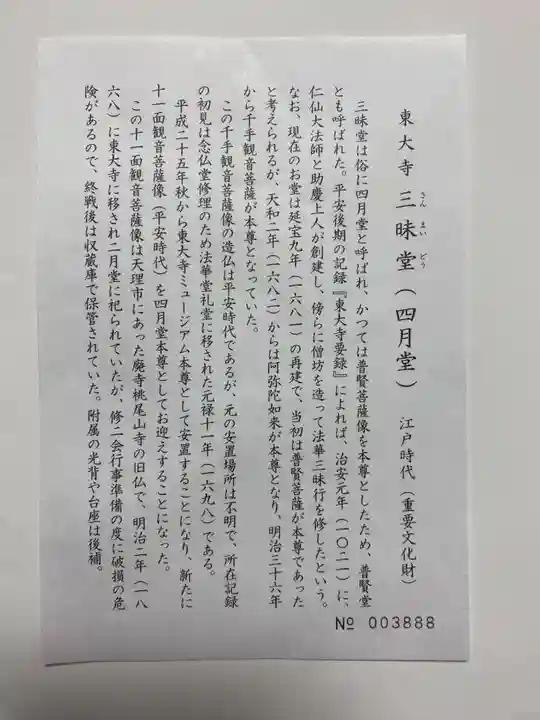 東大寺 三昧堂(四月堂) 江戸時代(重要文化財)
さん まい どう
三昧堂は俗に四月堂と呼ばれ、かつては普賢菩薩像を本尊としたため、普賢堂
とも呼ばれた。平安後期の記録『東大寺要録』によれば、治安元年(一〇二一)に、
仁仙大法師と助慶上人が創建し、傍らに僧坊を造って法華三昧行を修したという。
なお、現在のお堂は延宝九年(一六八一)の再建で、当初は普賢菩薩が本尊であった
と考えられるが、天和二年(一六八二)からは阿弥陀如来が本尊となり、明治三十六年
から千手観音菩薩が本尊となっていた。
この千手観音菩薩像の造仏は平安時代であるが、元の安置場所は不明で、所在記録
の初見は念仏堂修理のため法華堂礼堂に移された元禄十一年(一六九八)である。
平成二十五年秋から東大寺ミュージアム本尊として安置することになり、新たに
十一面観音菩薩像(平安時代)を四月堂本尊としてお迎えすることになった。
この十一面観音菩薩像は天理市にあった廃寺桃尾山寺の旧仏で、明治二年(一八
六八)に東大寺に移され二月堂に祀られていたが、修二会行事準備の度に破損の危
険があるので、終戦後は収蔵庫で保管されていた。附属の光背や台座は後補。
№ 003888